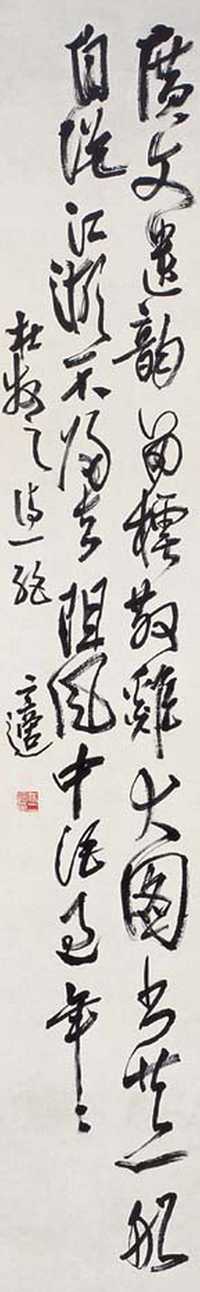 廣文遺韵留樗散雞犬圖書共一船
自說江湖不歸去阻風中酒過年〻
杜牧之詩一絕